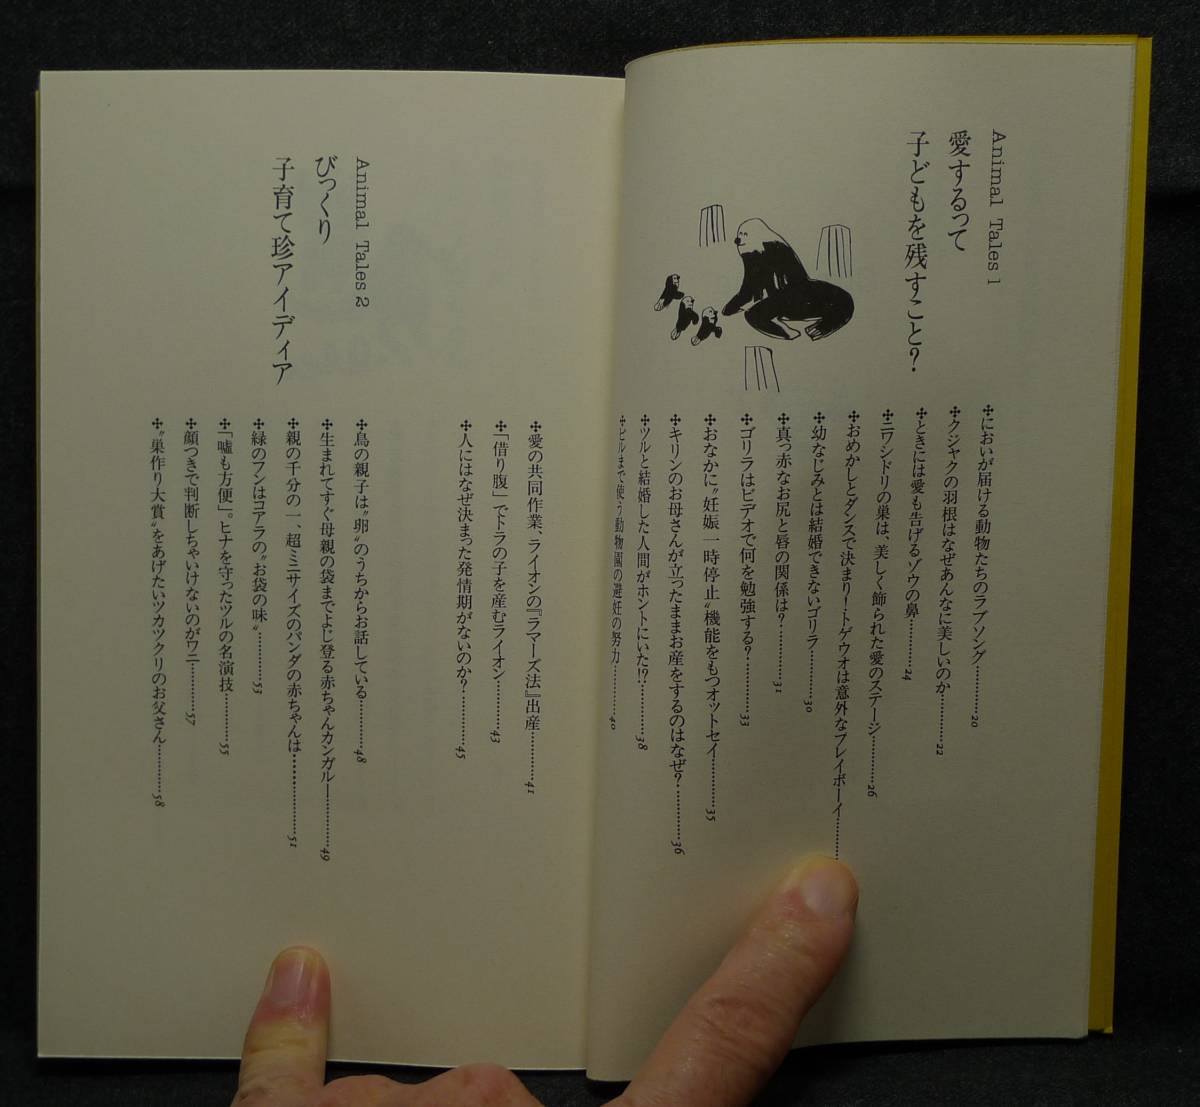 Animal Tales 1
愛するって
子どもを残すこと?
✣においが届ける動物たちのラブソング…………20
✣クジャクの羽根はなぜあんなに美しいのか…………22
✣ときには愛も告げるゾウの鼻…………24
✣ニワシドリの巣は、美しく飾られた愛のステージ…………26
✣おめかしとダンスで決まり!トゲウオは意外なプレイボーイ…………
✣幼なじみとは結婚できないゴリラ…………30
✣真っ赤なお尻と唇の関係は?…………31
✣ゴリラはビデオで何を勉強する?…………33
✣おなかに〝妊娠一時停止〟機能をもつオットセイ…………35
✣キリンのお母さんが立ったままお産をするのはなぜ?…………36
✣ツルと結婚した人間がホントにいた!?…………38
✣ピルまで使う動物園の避妊の努力…………40
✣愛の共同作業、ライオンの『ラマーズ法』出産…………41
✣「借り腹」でトラの子を産むライオン…………43
✣人にはなぜ決まった発情期がないのか?…………45
Animal Tales 2
びっくり
子育て珍アイディア
✣鳥の親子は〝卵〟のうちからお話している…………48
✣生まれてすぐ母親の袋までよじ登る赤ちゃんカンガルー…………49
✣親の千分の一、超ミニサイズのパンダの赤ちゃんは…………51
✣緑のフンはコアラの〝お袋の味〟…………53
✣「嘘も方便」。ヒナを守ったツルの名演技…………55
✣顔つきで判断しちゃいけないのがワニ…………57
✣〝巣作り大賞〟をあげたいツカツクリのお父さん…………58